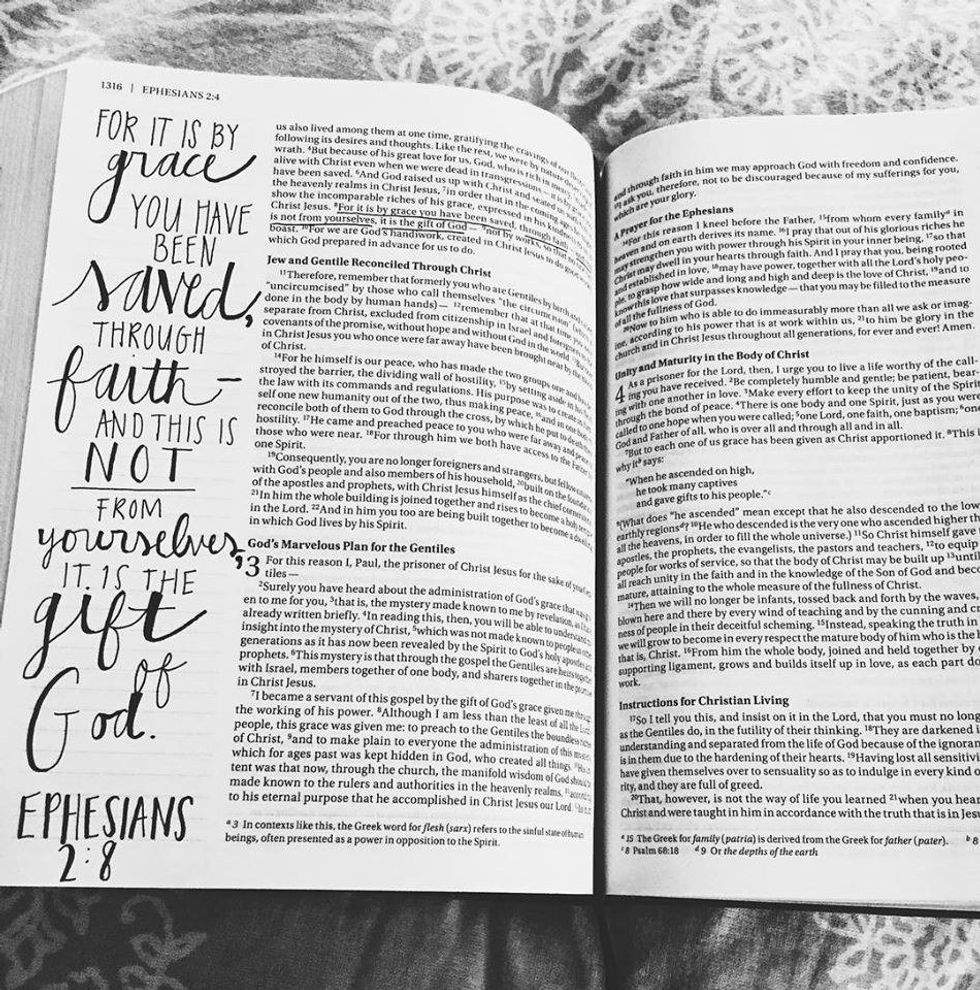 1316 | EPHESIANS 2:4
FOR IT IS BY
grace
YOU HAVE
BEEN
saved,
THROUGH
faith –
AND THIS IS
NOT
FROM
yourselves,
IT IS THE
gift
of
God.
EPHESIANS
2:8
us also lived among them at one time, gratifying the cravings of
following its desires and thoughts. Like the rest, we were by nature
wrath. ⁴But because of his great love for us, God, who is rich in
alive with Christ even when we were dead in transgressions—it is by
have been saved. ⁶And God raised us up with Christ and seated us with
the heavenly realms in Christ Jesus, ⁷in order that in the coming ages
show the incomparable riches of his grace, expressed in his kindness
Christ Jesus. ⁸For it is by grace you have been saved, through faith
is not from yourselves, it is the gift of God— ⁹not by works, so that
boast. ¹⁰For we are God's handiwork, created in Christ Jesus to do good
which God prepared in advance for us to do.
Jew and Gentile Reconciled Through Christ
¹¹Therefore, remember that formerly you who are Gentiles by birth and
"uncircumcised" by those who call themselves "the circumcision" (which
done in the body by human hands)— ¹²remember that at that time you
separate from Christ, excluded from citizenship in Israel and foreigners
covenants of the promise, without hope and without God in the world.
in Christ Jesus you who once were far away have been brought near by the
of Christ.
¹⁴For he himself is our peace, who has made the two groups one and has
stroyed the barrier, the dividing wall of hostility, ¹⁵by setting aside in his
the law with its commands and regulations. His purpose was to create in
self one new humanity out of the two, thus making peace, ¹⁶and in one
reconcile both of them to God through the cross, by which he put to death
hostility. ¹⁷He came and preached peace to you who were far away and peace
those who were near. ¹⁸For through him we both have access to the Father
one Spirit.
¹⁹Consequently, you are no longer foreigners and strangers, but fellow
with God's people and also members of his household, ²⁰built on the foundation
of the apostles and prophets, with Christ Jesus himself as the chief cornerstone.
²¹In him the whole building is joined together and rises to become a holy temple
in the Lord. ²²And in him you too are being built together to become a dwelling
in which God lives by his Spirit.
God's Marvelous Plan for the Gentiles
3 For this reason I, Paul, the prisoner of Christ Jesus for the sake of you
tiles—
²Surely you have heard about the administration of God's grace that was
en to me for you, ³that is, the mystery made known to me by revelation, as I have
already written briefly. ⁴In reading this, then, you will be able to understand
insight into the mystery of Christ, ⁵which was not made known to people in other
generations as it has now been revealed by the Spirit to God's holy apostles and
prophets. ⁶This mystery is that through the gospel the Gentiles are heirs together
with Israel, members together of one body, and sharers together in the promise
in Christ Jesus.
⁷I became a servant of this gospel by the gift of God's grace given me through
the working of his power. ⁸Although I am less than the least of all the Lord's
people, this grace was given me: to preach to the Gentiles the boundless riches
of Christ, ⁹and to make plain to everyone the administration of this mystery,
which for ages past was kept hidden in God, who created all things. ¹⁰His in-
tent was that now, through the church, the manifold wisdom of God should be
made known to the rulers and authorities in the heavenly realms, ¹¹according
to his eternal purpose that he accomplished in Christ Jesus our Lord. ¹²In
ᵃ3 In contexts like this, the Greek word for flesh (sarx) refers to the sinful state of human
beings, often presented as a power in opposition to the Spirit.
and through faith in him we may approach God with freedom and confidence.
¹³I ask you, therefore, not to be discouraged because of my sufferings for you,
which are your glory.
A Prayer for the Ephesians
¹⁴For this reason I kneel before the Father, ¹⁵from whom every familyᵃ in
heaven and on earth derives its name. ¹⁶I pray that out of his glorious riches he
may strengthen you with power through his Spirit in your inner being, ¹⁷so that
Christ may dwell in your hearts through faith. And I pray that you, being rooted
and established in love, ¹⁸may have power, together with all the Lord's holy peo-
ple, to grasp how wide and long and high and deep is the love of Christ, ¹⁹and to
know this love that surpasses knowledge—that you may be filled to the measure
of all the fullness of God.
²⁰Now to him who is able to do immeasurably more than all we ask or imag-
ine, according to his power that is at work within us, ²¹to him be glory in the
church and in Christ Jesus throughout all generations, for ever and ever! Amen.
Unity and Maturity in the Body of Christ
4 As a prisoner for the Lord, then, I urge you to live a life worthy of the call-
ing you have received. ²Be completely humble and gentle; be patient, bear-
ing with one another in love. ³Make every effort to keep the unity of the Spirit
through the bond of peace. ⁴There is one body and one Spirit, just as you were
called to one hope when you were called; ⁵one Lord, one faith, one baptism;
God and Father of all, who is over all and through all and in all.
⁷But to each one of us grace has been given as Christ apportioned it. ⁸This i
why itᵇ says:
"When he ascended on high,
he took many captives
and gave gifts to his people."ᶜ
⁹(What does "he ascended" mean except that he also descended to the low
earthly regionsᵈ? ¹⁰He who descended is the very one who ascended higher th
all the heavens, in order to fill the whole universe.) ¹¹So Christ himself gave
apostles, the prophets, the evangelists, the pastors and teachers, ¹²to equip
people for works of service, so that the body of Christ may be built up ¹³until
all reach unity in the faith and in the knowledge of the Son of God and beco
mature, attaining to the whole measure of the fullness of Christ.
¹⁴Then we will no longer be infants, tossed back and forth by the waves,
blown here and there by every wind of teaching and by the cunning and c
ness of people in their deceitful scheming. ¹⁵Instead, speaking the truth in
we will grow to become in every respect the mature body of him who is the
that is, Christ. ¹⁶From him the whole body, joined and held together by
supporting ligament, grows and builds itself up in love, as each part do
work.
Instructions for Christian Living
¹⁷So I tell you this, and insist on it in the Lord, that you must no long
as the Gentiles do, in the futility of their thinking. ¹⁸They are darkened i
understanding and separated from the life of God because of the ignoran
is in them due to the hardening of their hearts. ¹⁹Having lost all sensitivi
have given themselves over to sensuality so as to indulge in every kind o
rity, and they are full of greed.
²⁰That, however, is not the way of life you learned ²¹when you hea
Christ and were taught in him in accordance with the truth that is in Jesu
ᵃ15 The Greek for family (patria) is derived from the Greek for father (pater). ᵇ8
ᶜ8 Psalm 68:18 ᵈ9 Or the depths of the earth